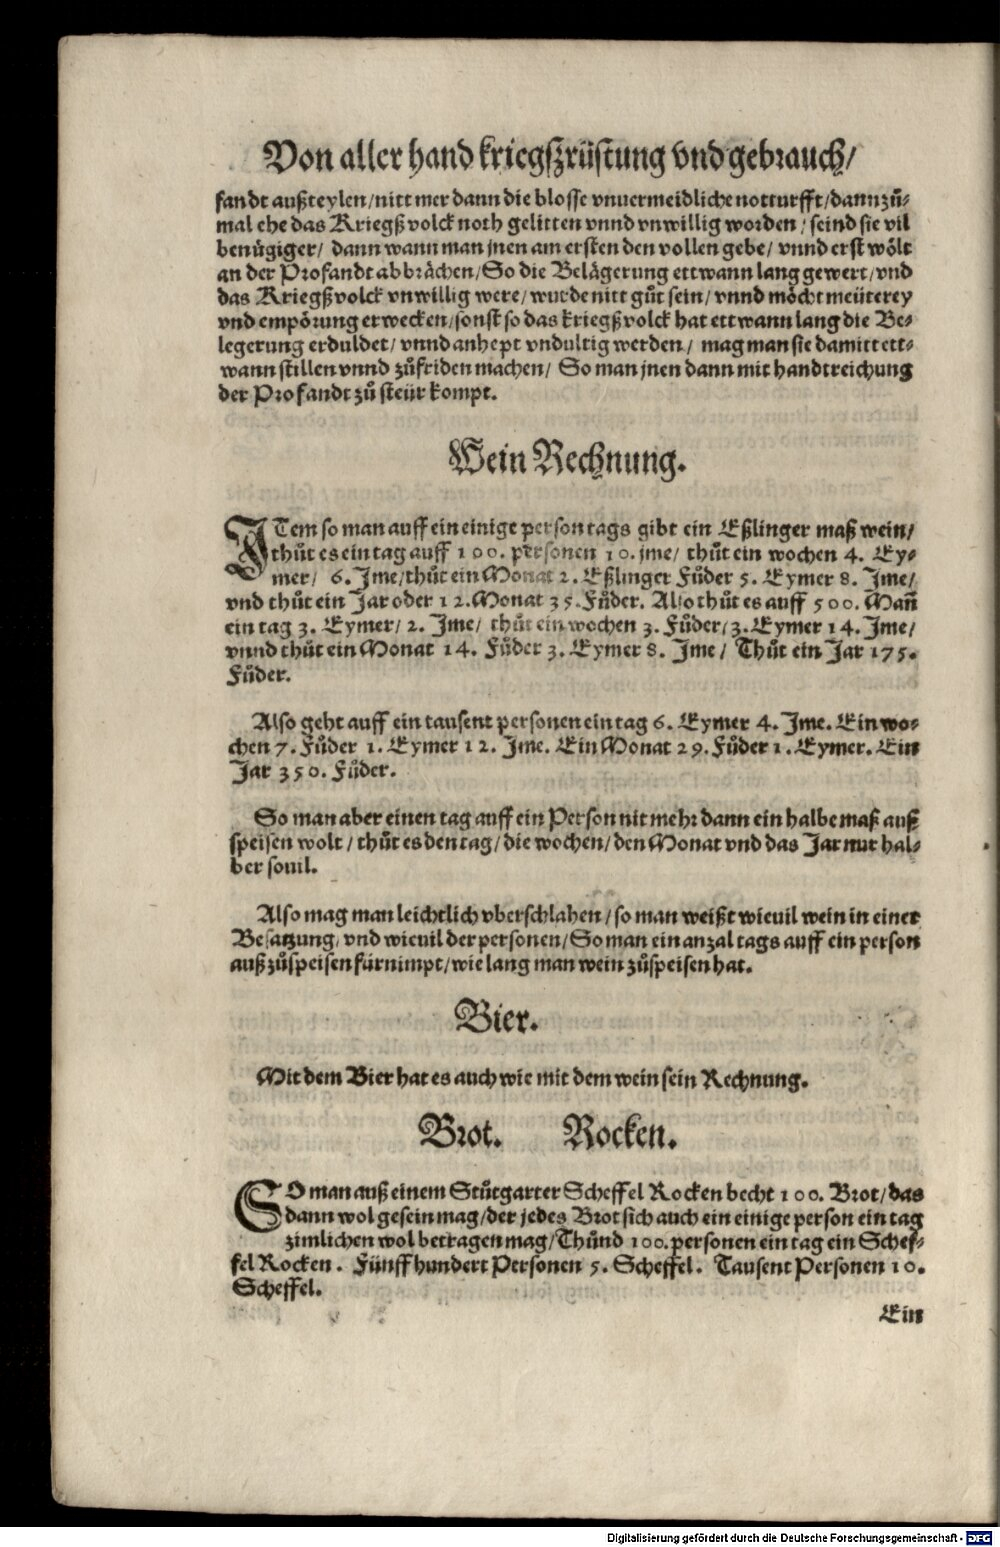 Von aller hand kriegßrüstung vnd gebrauch/
fandt außteylen/nitt mer dann die blosse vnuermeidliche notturfft/dann zů-
mal ehe das Kriegßvolck noth gelitten vnnd vnwillig worden/ seind sie vil
benügiger/ dann wann man jnen am ersten den vollen gebe/ vnnd erst wölt
an der Profandt abbrächen/So die Belägerung ettwann lang gewert/vnd
das Kriegßvolck vnwillig were/wurde nitt gůt sein/vnnd möcht meüterey
vnd empörung erwecken/sonst so das kriegßvolck hat ettwann lang die Be-
legerung erduldet/vnnd anhept vndultig werden/ mag man sie damitt ett-
wann stillen vnnd zůfriden machen/ So man jnen dann mit handtreichung
der Profandt zů steür kompt.
Wein Rechnung.
ITem so man auff ein einige person tags gibt ein Eßlinger maß wein/
thůt es ein tag auff 100. personen 10. jme/ thůt ein wochen 4. Ey-
mer/ 6. Jme/thůt ein Monat 2. Eßlinger Fůder 5. Eymer 8. Jme/
vnd thůt ein Jar oder 12. Monat 35. Fůder. Also thůt es auff 500. Mañ
ein tag 3. Eymer/ 2. Jme/ thůt ein wochen 3. Fůder/3. Eymer 14. Jme/
vnnd thůt ein Monat 14. Fůder 3. Eymer 8. Jme/ Thůt ein Jar 175.
Fůder.
Also geht auff ein tausent personen ein tag 6. Eymer 4. Jme. Ein wo-
chen 7. Fůder 1. Eymer 12. Jme. Ein Monat 29. Fůder 1. Eymer. Ein
Jar 350. Fůder.
So man aber einen tag auff ein Person nit mehr dann ein halbe maß auß
speisen wolt/ thůt es den tag/die wochen/den Monat vnd das Jar nur hal-
ber souil.
Also mag man leichtlich vberschlahen/so man weißt wieuil wein in einer
Besatzung/ vnd wieuil der personen/So man ein anzal tags auff ein person
auß zůspeisen fürnimpt/wie lang man wein zůspeisen hat.
Bier.
Mit dem Bier hat es auch wie mit dem wein sein Rechnung.
Brot. Rocken.
SO man auß einem Stůtgarter Scheffel Rocken becht 100. Brot/das
dann wol gesein mag/der jedes Brot sich auch ein einige person ein tag
zimlichen wol betragen mag/Thůnd 100. personen ein tag ein Schef-
fel Rocken. Fünff hundert Personen 5. Scheffel. Tausent Personen 10.
Scheffel.
Ein
Digitalisierung gefördert durch die Deutsche Forschungsgemeinschaft - DFG